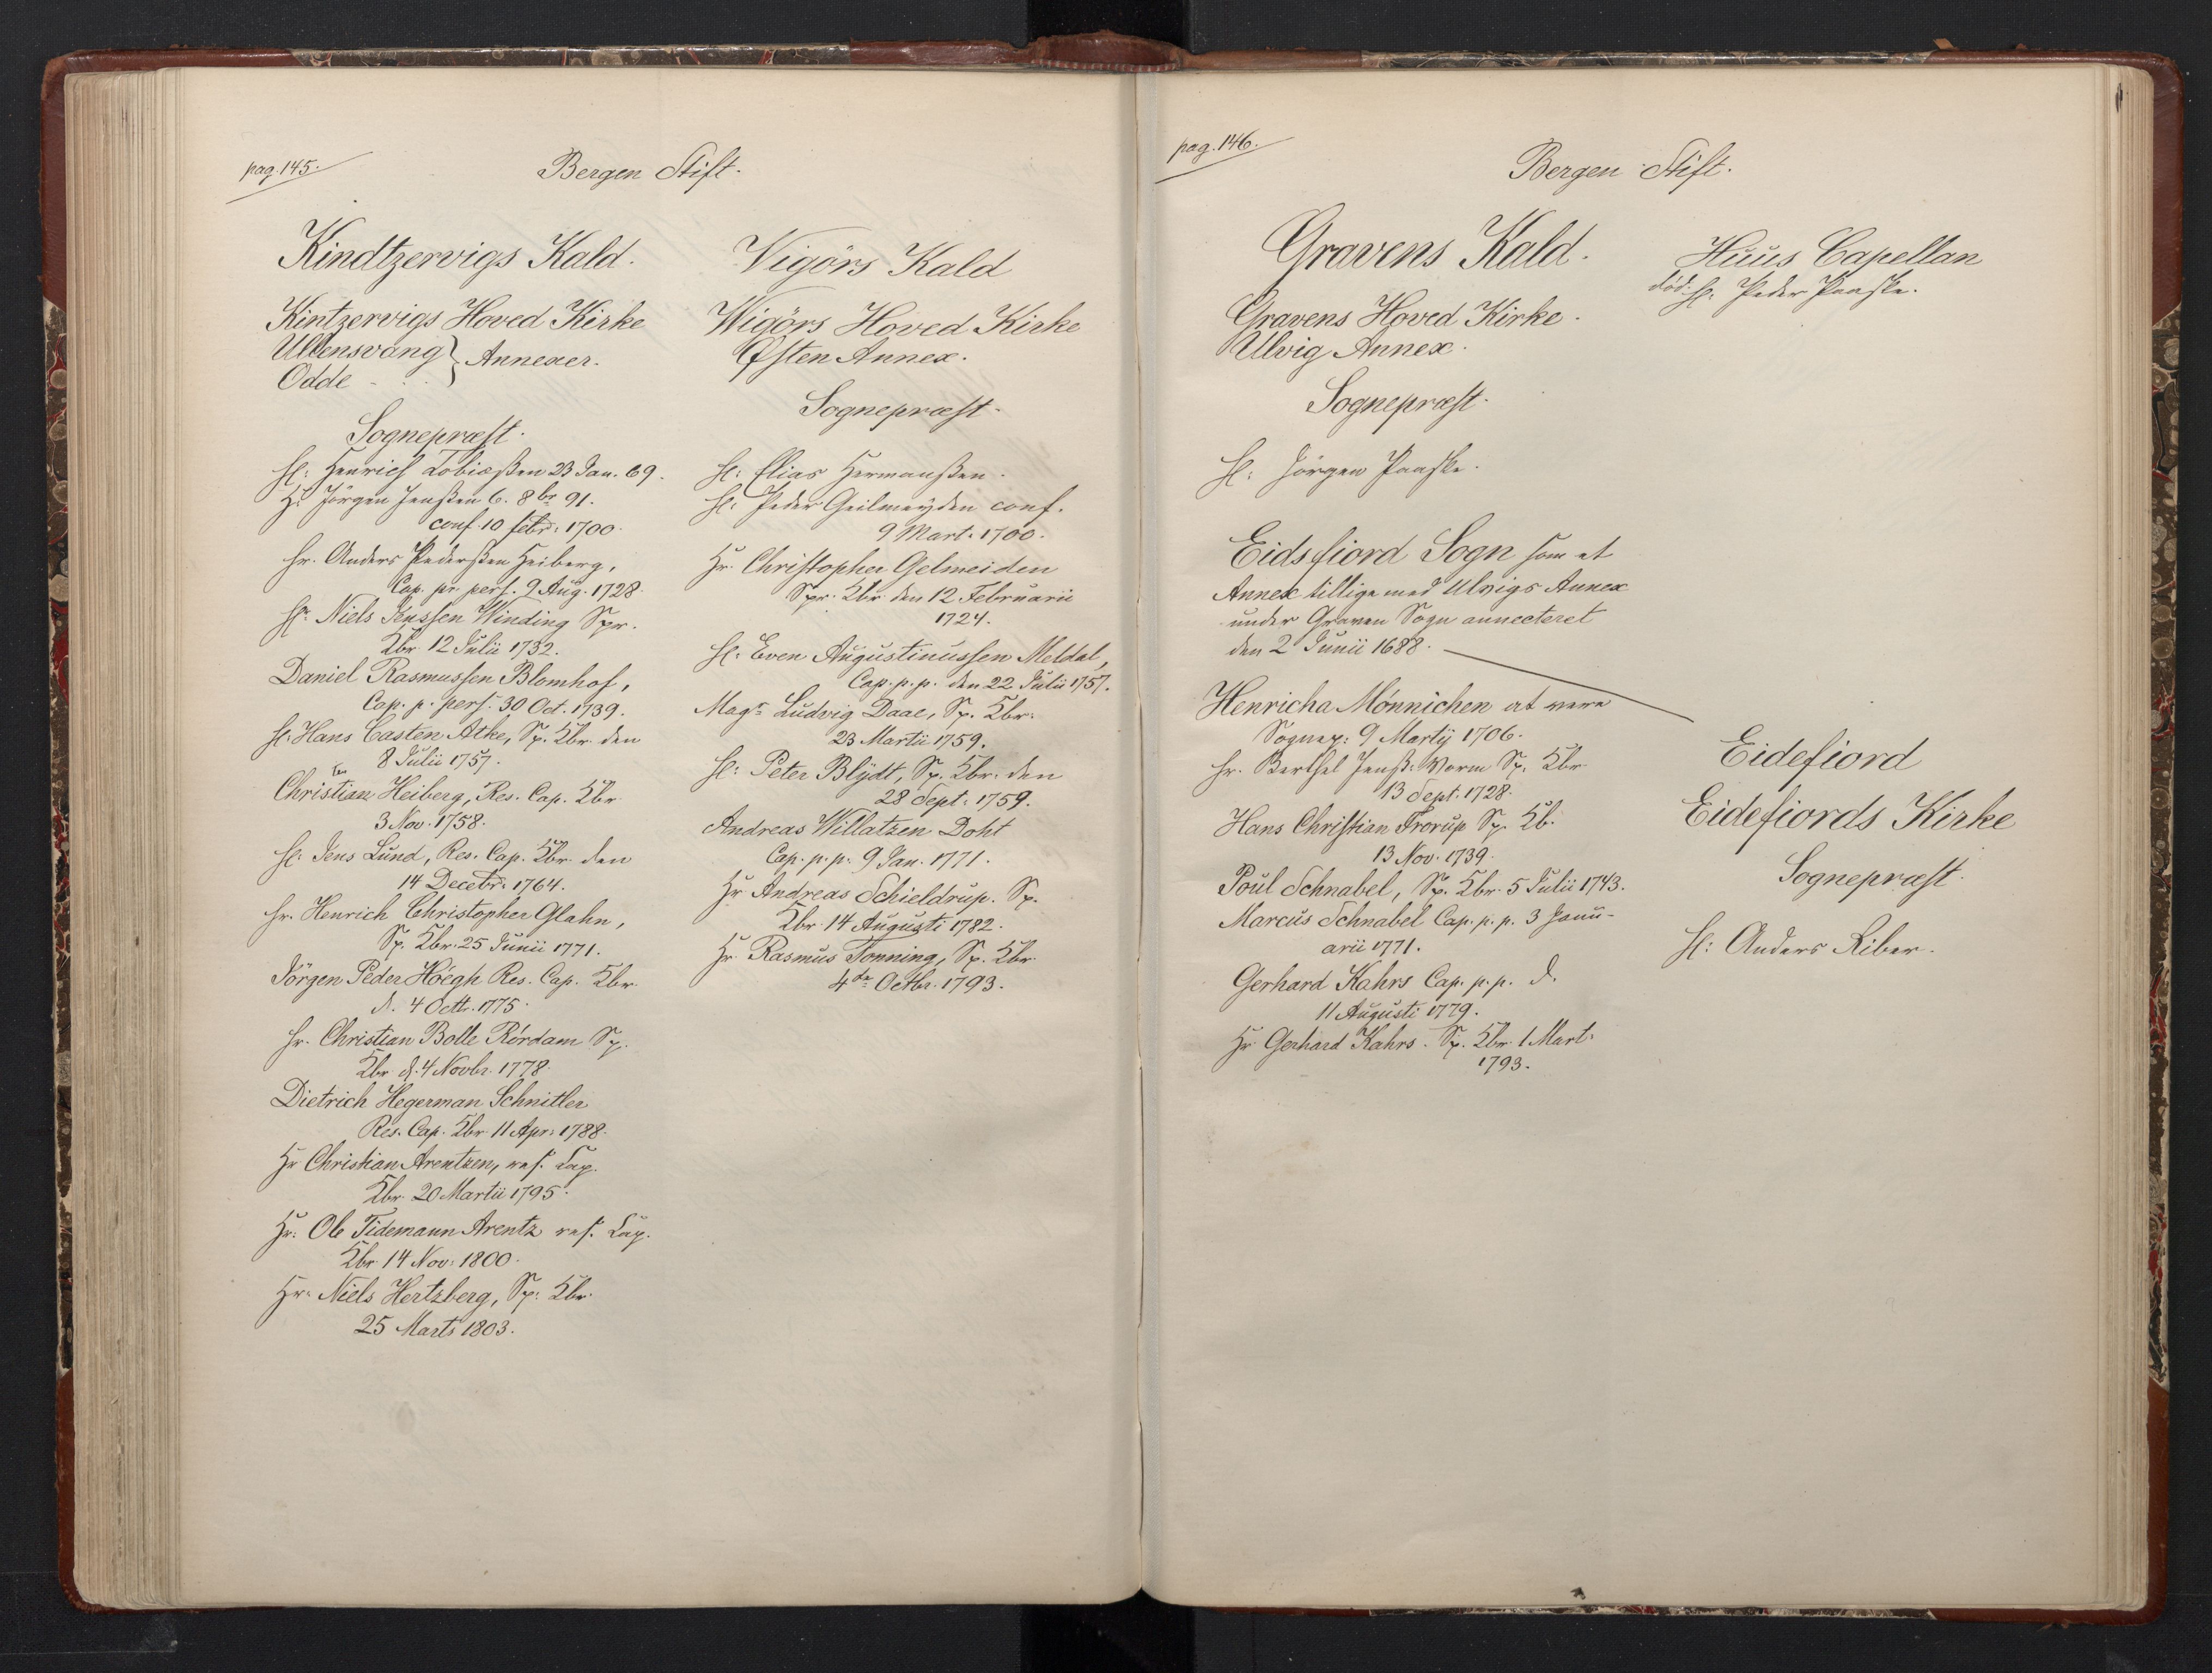 pag. 145.
Bergen Stift.
Kindtzervigs Kald.
Kintzervigs Hoved Kirke
Ullensvang } Annexer.
Odde
Sognepræst.
H: Henrich Tobiæßen 23 Jan. 69.
H: Jörgen Jenßen 6. 8br 91.
conf. 10 febr: 1700.
Hr. Anders Pederßen Heiberg,
Cap. pr. pers. 9 Aug. 1728.
Hr. Niels Jenssen Winding Spr.
Kbr. 12 Julii 1732.
Daniel Rasmussen Blomhof,
Cap. p. pers. 30 Oct. 1739.
H: Hans Casten Atke, Sp. Kbr. den
8 Julii 1757.
Christian Heiberg, Res. Cap. Kbr.
3 Nov. 1758.
H: Jens Lund, Res. Cap. Kbr. den
14 Decebr: 1764.
Hr. Henrich Christopher Glahn,
Sp. Kbr. 25 Junii 1771.
Jörgen Peder Höegh Res. Cap. Kbr.
d. 4 Octbr. 1775.
Hr. Christian Bolle Rördam Sp.
Kbr. d. 4 Novbr. 1778.
Dietrich Hegerman Schnitler
Res. Cap. Kbr. 11 Apr: 1788.
Hr Christian Arentzen, res. Cap.
Kbr. 20 Martii 1795.
Hr: Ole Tidemann Arentz res. Cap.
Kbr. 14 Nov: 1800.
Hr. Niels Hertzberg, Sp: Kbr.
25 Marts 1803.
Vigörs Kald
Wigörs Hoved Kirke
Østen Annex.
Sognepræst.
H: Elias Hermanßen.
H: Peder Geilmeyden conf.
9 Mart. 1700.
Hr. Christopher Gelmeiden
Spr. Kbr. den 12 Februarii
1724.
H: Even Augustinussen Meldal,
Cap. p. p. den 22 Julii 1757.
Magr Ludvig Daae, Sp. Kbr:
23 Martii 1759.
H: Peter Blÿdt, Sp. Kbr. den
28 Sept: 1759.
Andreas Willatzen Doht
Cap. p. p. 9 Jan. 1771.
Hr Andreas Schieldrup. Sp.
Kbr. 14 Augusti 1782.
Hr. Rasmus Tonning, Sp. Kbr.
4de Octbr. 1793.
pag. 146.
Bergen Stift.
Gravens Kald.
Gravens Hoved Kirke.
Ulvig Annex.
Sognepræst.
H: Jörgen Paaske.
Eidsfiord Sogn som et
Annex tillige med Ulvigs Annex
under Graven Sogn annecteret
den 2 Junii 1688.
Henricha Mönnichen at være
Sognep: 9 Martij 1706.
Hr. Berthel Jenß: Worm Sp. Kbr.
13 Sept. 1728.
Hans Christian Trorup Sp. Kb.
13 Nov. 1739.
Poul Schnabel, Sp. Kbr. 5 Julii 1743.
Marcus Schnabel Cap. p. p. 3 Janu-
arii 1771.
Gerhard Kahrs Cap. p. p. d.
11 Augusti 1779.
Hr Gerhard Kahrs. Sp. Kbr. 1 Mart:
1793.
Huus Capellan
död: H: Peder Paaske.
Eidefiord
Eidefiords Kirke
Sognepræst.
H: Anders Riber.